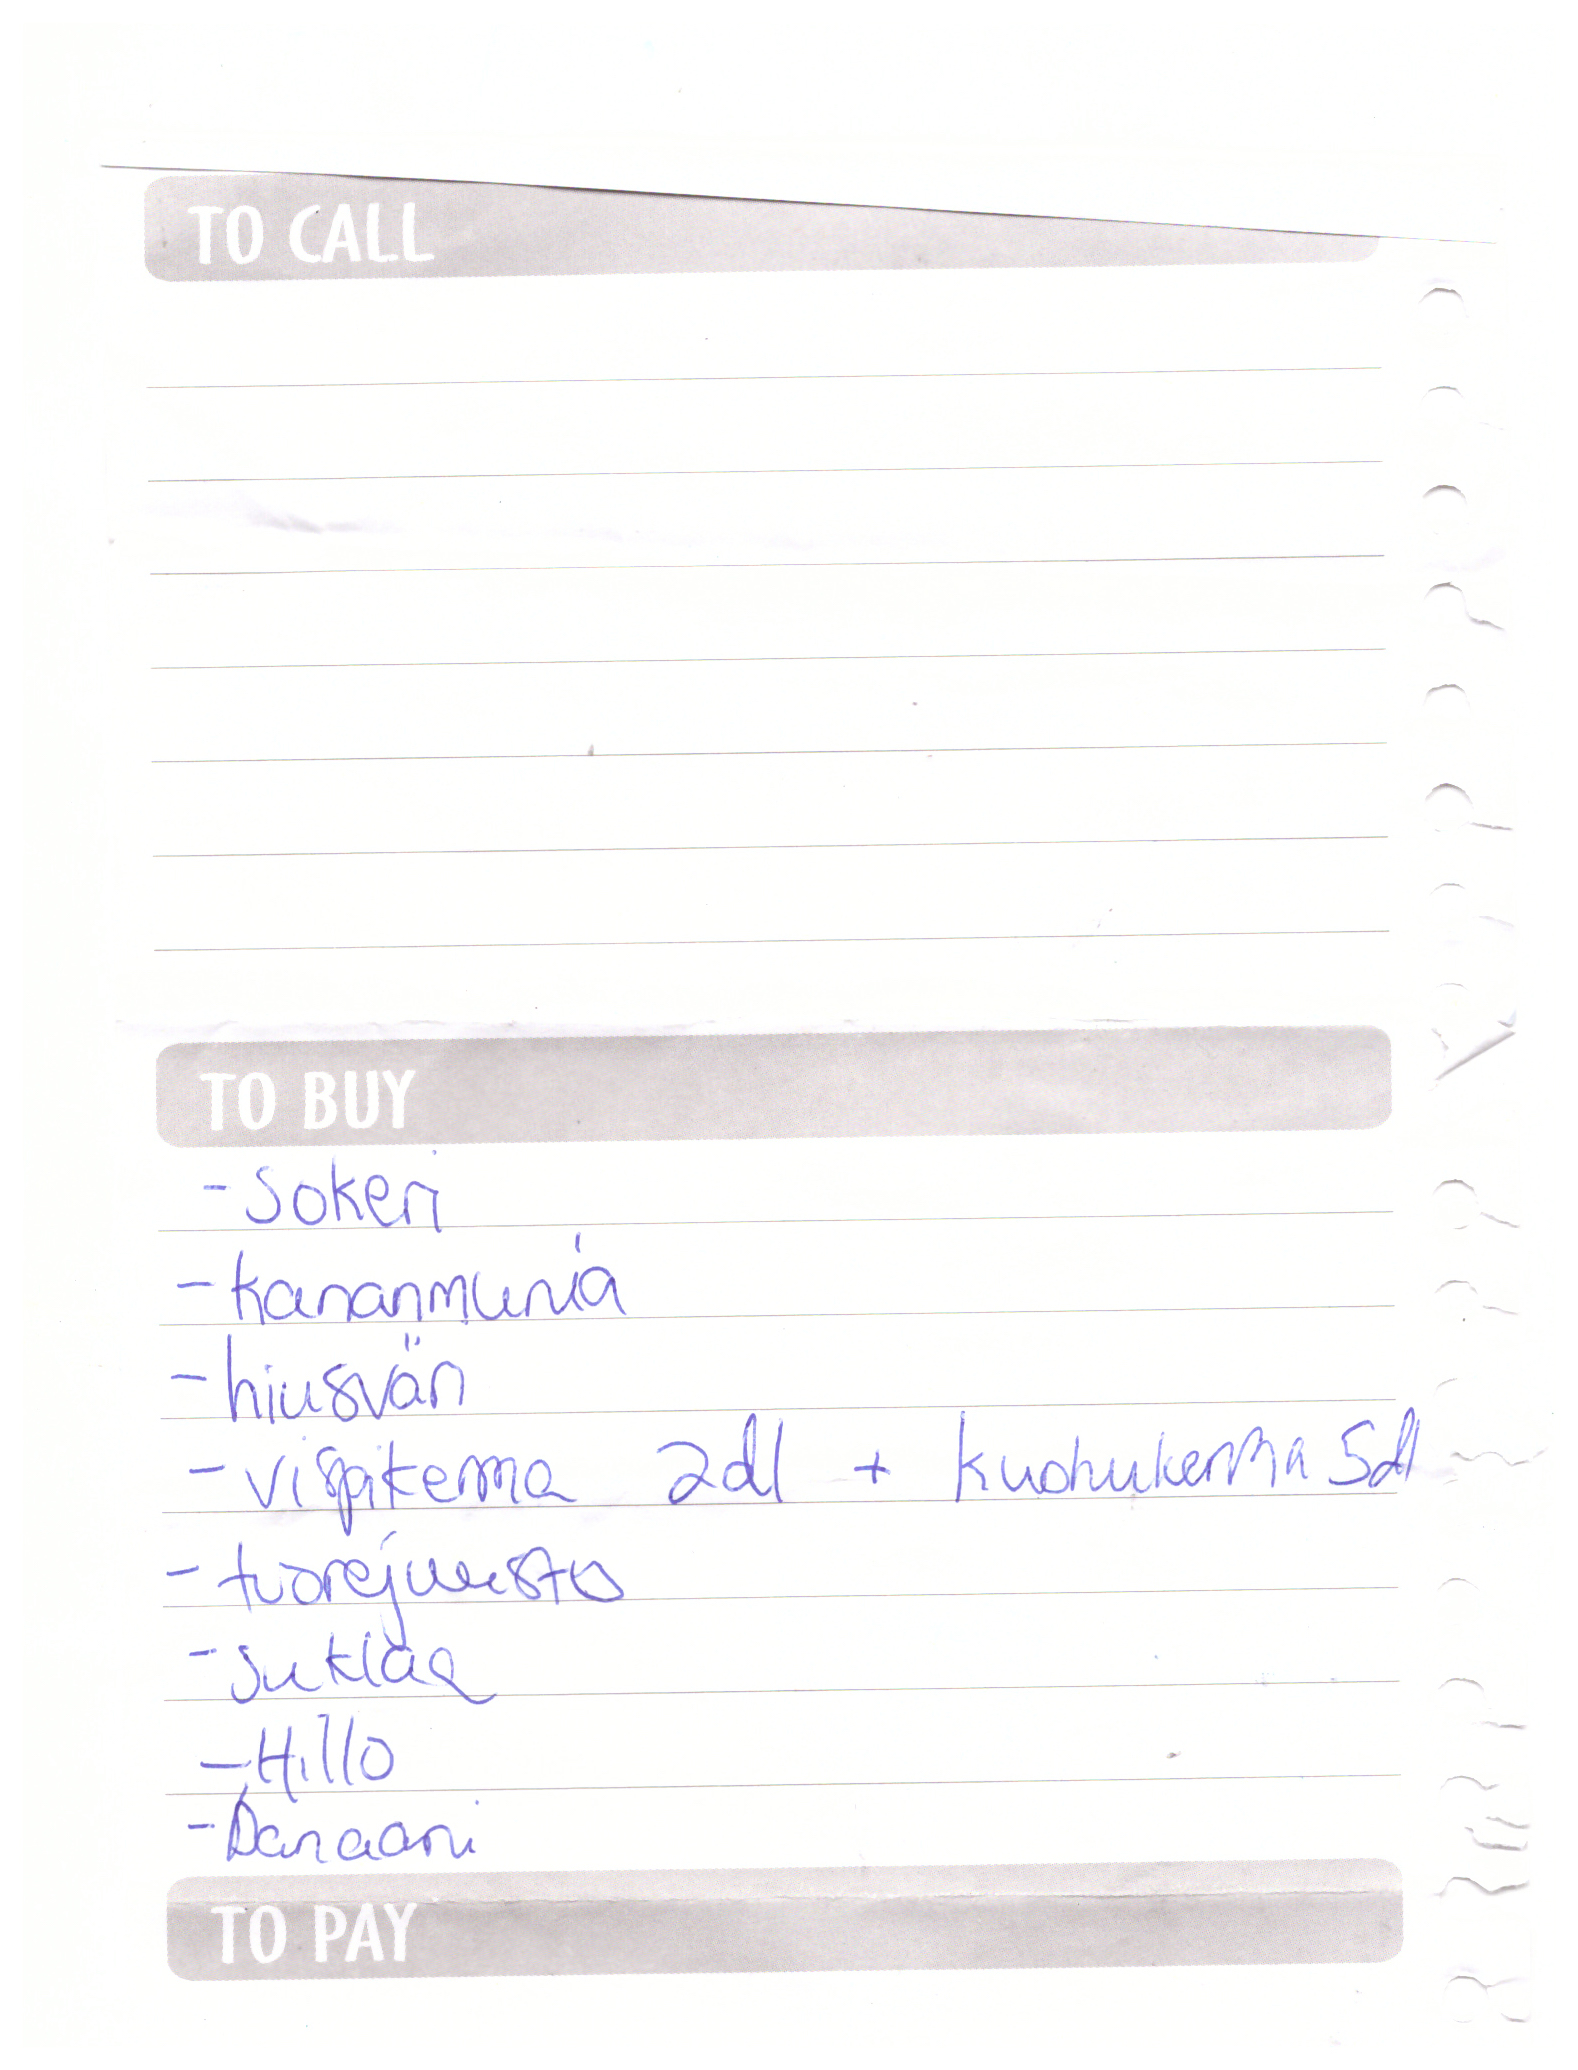 TO CALL
TO BUY
- Sokeri
- kananmunia
- hiusvän
- vispikerma 2dl + kuohukerma 5dl
- tuorejuusto
- suklaa
- Hillo
- Banaani
TO PAY